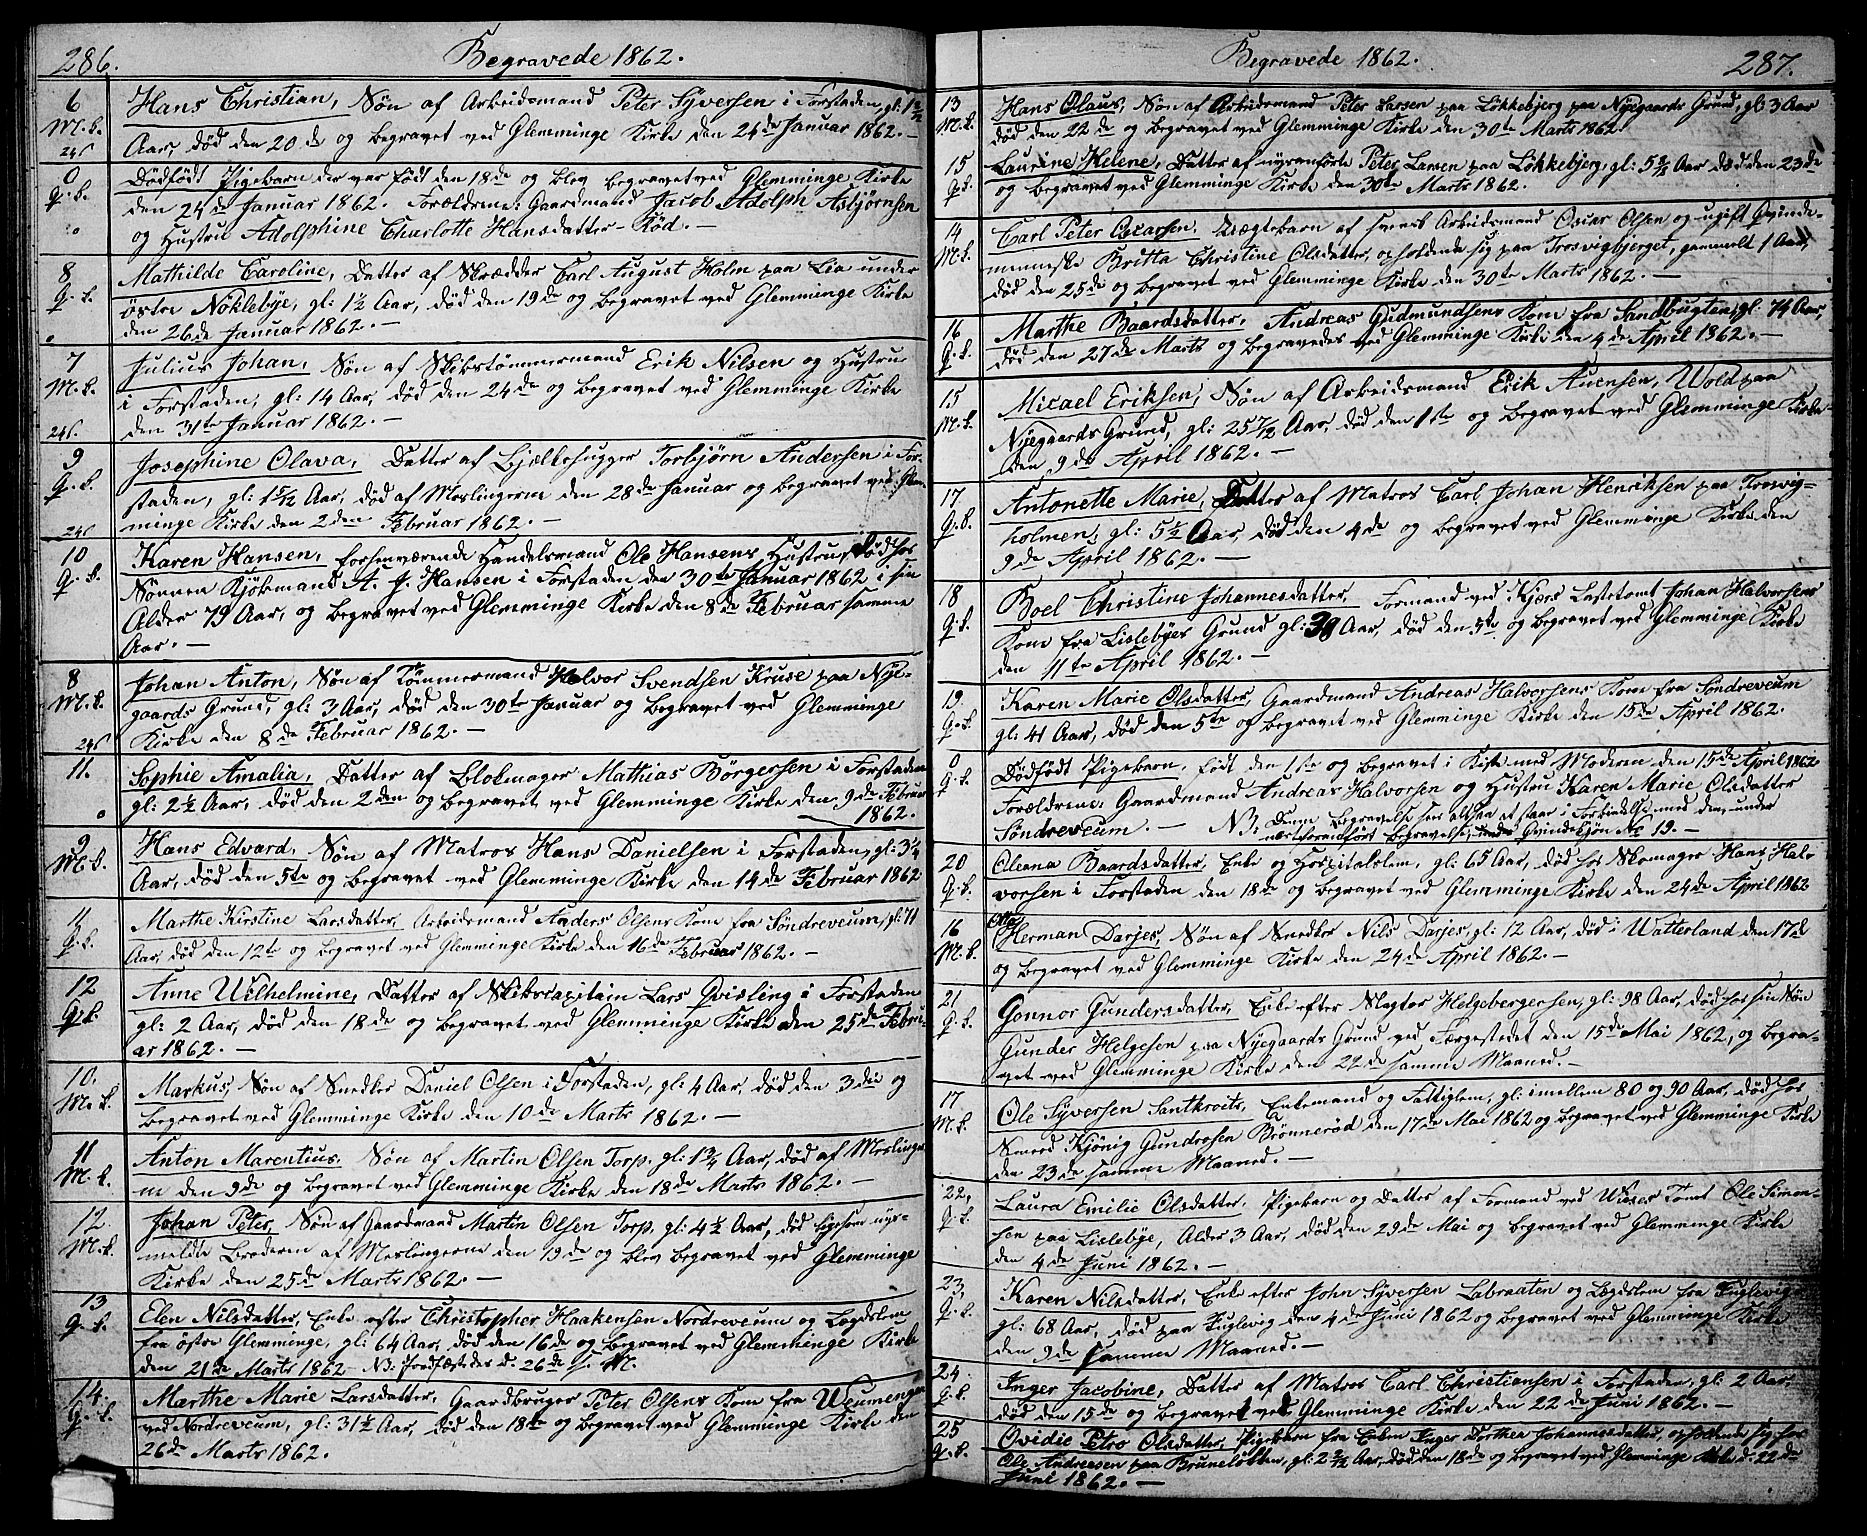 286.
Begravede 1862.
6
M.k.
24ſ
Hans Christian, Søn af Arbeidsmand Peter Syversen i Forstaden, gl: 1 1/2
Aar, død den 20de og begravet ved Glemminge Kirke den 24de Januar 1862.—
0
Q.k.
Dødfødt Pigebarn der var født den 18de og blev begravet ved Glemminge Kirke
den 24de Januar 1862. Forældrene: Gaardmand Jacob Adolph Asbjørnsen
og Hustru Adolphine Charlotte Hansdatter – Rød.—
8
Q.k.
Mathilde Caroline, Datter af Skrædder Carl August Holm paa Lia under
østre Nøklebye, gl: 1 1/2 Aar, død den 19de og begravet ved Glemminge Kirke
den 26de Januar 1862.—
7
M.k.
24ſ.
Julius Johan, Søn af Skibstømmermand Erik Nilsen og Hustru
i Forstaden, gl: 14 Aar, død den 24de og begravet ved Glemminge Kirke
den 31te Januar 1862.—
9
Q.k.
24ſ
Josephine Olava, Datter af Bjælkehugger Torbjørn Andersen i For-
staden, gl: 1 5/12 Aar, død af Meslingerne den 28de Januar og begravet ved Glem-
minge Kirke den 2den Februar 1862.—
10
Q.k.
Karen Hansen, forhenværende Handelsmand Ole Hansens Hustru, død hos
Sønnen Kjøbmand A. J. Hansen i Forstaden den 30te Januar 1862 i sin
Alder 79 Aar, og begravet ved Glemminge Kirke den 8de Februar samme
Aar.—
8
M.k.
24ſ
Johan Anton, Søn af Tømmermand Helvor Svendsen Kruse paa Nye-
gaards Grund, gl: 3 Aar, død den 30te Januar og begravet ved Glemminge
Kirke den 8de Februar 1862.—
11.
Sophie Amalia, Datter af Blokmager Mathias Børgersen i Forstaden
gl: 2 1/2 Aar, død den 2den og begravet ved Glemminge Kirke den 9de Februar
1862.
9
M.k.
Hans Edvard, Søn af Matros Hans Danielsen i Forstaden, gl: 3 1/4
Aar, død den 5te og begravet ved Glemminge Kirke den 14de Februar 1862
11
Q.k.
Marthe Kirstine Larsdatter, Arbeidsmand Anders Olsens Kone fra Søndreveum, gl: 71
Aar, død den 12te og begravet ved Glemminge Kirke den 16de Februar 1862.—
12
Q.k.
Anne Wilhelmine, Datter af Skibscapitain Lars Qvisling i Forstaden
gl: 2 Aar, død den 18de og begravet ved Glemminge Kirke den 25de Febru-
ar 1862.—
10.
M.k.
Markus, Søn af Snedker Daniel Olsen i Forstaden, gl: 4 Aar, død den 3die og
begravet ved Glemminge Kirke den 10de Marts 1862.—
11
M.k.
Anton Marentius, Søn af Martin Olsen Torp. gl: 1 3/4 Aar, død af Meslinger-
ne den 9de og begravet ved Glemminge Kirke den 18de Marts 1862.—
12.
M.k.
Johan Peter, Søn af Gaardmand Martin Olsen Torp. gl: 4 1/2 Aar, død ligesom nys-
meldte Broderen af Meslingerne den 19de og blev begravet ved Glemminge
Kirke den 25de Marts 1862.—
13
Q.k.
Elen Nilsdatter, Enke efter Christopher Haakensen Nordreveum og Lægdslem
fra østre Glemminge, gl: 64 Aar, død den 16de og begravet ved Glemminge Kirke
den 21de Marts 1862 – NB: jordfæstedes d. 26de s. M.
14.
Q.k.
Marthe Marie Larsdatter, Gaardbruger Peter Olsens Kone fra Weumengen
ved Nordreveum, gl: 31 1/2 Aar, død den 18de og begravet ved Glemminge Kirke den
26de Marts 1862.
Begravede 1862.
287.
13
M.k.
Hans Olaus, Søn af Arbeidsmand Peter Larsen paa Løkkebjerg paa Nyegaards Grund, gl: 3 Aar
død den 22de og begravet ved Glemminge Kirke den 30te Marts 1862.
15
Q.k.
Laurine Helene, Datter af nysanførte Peter Larsen paa Løkkebjerg, gl: 5 Aar død den 23de
og begravet ved Glemminge Kirke den 30te Marts 1862.
14
M.k.
Carl Peter Oscarsen, Uægtebarn af svensk Arbeidsmand Oscar Olsen og ugift Qvinde-
menneske Britta Christine Olsdatter, opholdende sig paa Trosvigbjerget, gammelt 1 Aar,
død den 25de og begravet ved Glemminge Kirke den 30te Marts 1862.—
16
Q.k.
Marthe Baardsdatter, Andreas Gudmundsens Kone fra Sandbugten, gl: 74 Aar,
død den 27de Marts og begravedes ved Glemminge Kirke den 4de April 1862.—
15
M.k.
Micael Eriksen, Søn af Arbeidsmand Erik Auensen, Wold paa
Nyegaards Grund, gl: 25 7/12 Aar, død den 1ste og begravet ved Glemminge Kirke
den 9de April 1862.—
17
Q.k.
Antonette Marie, Datter af Matros Carl Johan Henriksen paa Trosvig-
holmen, gl: 5 1/2 Aar, død den 4de og begravet ved Glemminge Kirke den
9de April 1862.—
18
Q.k.
Boel Christine Johannesdatter, Formand ved Kjærs Lastetomt Johan Halvorsens
Kone fra Lislebyes Grund gl: 39 Aar, død den 5te og begravet ved Glemminge Kirke
den 11te April 1862.—
19.
Q.k.
Karen Marie Olsdatter, Gaardmand Andreas Halvorsens Kone fra Søndreveum
gl: 41 Aar, død den 5te og begravet ved Glemminge Kirke den 15de April 1862.
0
Q.k.
Dødfødt Pigebarn, født den 1ste og begravet i Kiste med Moderen den 15de April 1862
Forældrene: Gaardmand Andreas Halvorsen og Hustru Karen Marie Olsdatter
Søndreveum.— NB: Denne Begravelse sees altsaa at staa i Forbindelse med den under
næstforanførte Begravelse, Qvindekjøn No 19.—
20
Q.k.
Oleana Baardsdatter, Enke og Hospitalslem, gl: 65 Aar, død hos Skomager Hans Hal-
vorsen i Forstaden den 18de og begravet ved Glemminge Kirke den 24de April 1862
16
M.k.
Herman Darjes, Søn af Snedker Nils Darjes, gl: 12 Aar, død i Watterland den 17de
og begravet ved Glemminge Kirke den 24de April 1862.—
21
Q.k.
Gonnor Gundersdatter, Enke efter Slagter Helgebergersen, gl: 98 Aar, død hos sin Søn
Gunder Helgesen paa Nyegaards Grund ved Færgestedet den 15de Mai 1862, og begra-
vet ved Glemminge Kirke den 22de samme Maaned.—
17
M.k.
Ole Syversen Santkroits, Enkemand og Fattiglem, gl: imellem 80 og 90 Aar, død hos
Smed Kjønig Gundrosen Brønnerød den 17de Mai 1862 og begravet ved Glemminge Kirke
den 23de samme Maaned.—
22,
Q.k.
Laura Emilie Olsdatter, Pigebarn og Datter af Formand ved Wieses Tomt Ole Simon-
sen paa Lislebye, Alder 3 Aar, død den 29de Mai og begravet ved Glemminge Kirke
den 4de Juni 1862.—
23,
Q.k.
Karen Nilsdatter, Enke efter John Syversen Labraaten og Lægdslem fra Fuglevig
gl: 68 Aar, død paa Fuglevig den 4de Juni 1862 og begravet ved Glemminge Kirke
den 9de samme Maaned.—
24
Q.k.
Inger Jacobine, Datter af Matros Carl Christiansen i Forstaden, gl: 2 Aar,
død den 15de og begravet ved Glemminge Kirke den 22de Juni 1862.—
25
Q.k.
Ovidie Petro Olsdatter, Pigebarn fra Enken Inger Dorthea Johannesdatter, opholdende sig hos
Ole Andreasen paa Bruneløkken, gl: 2 Aar, død den 18de og begravet ved Glemminge Kirke d: 22de
Juni 1862.—